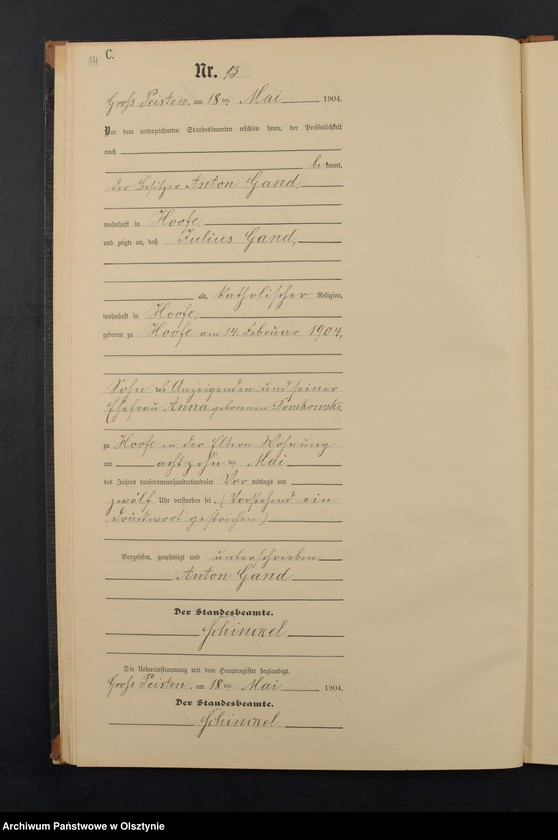 14
C.
Nr. 13
Groß Peisten, am 18 ten Mai 1904.
Vor dem unterzeichneten Standesbeamten erschien heute, der Persönlichkeit
nach
be kannt,
der Besitzer Anton Gand
wohnhaft in Hoofe,
und zeigte an, daß Julius Gand,
alt, katholischer Religion,
wohnhaft in Hoofe,
geboren zu Hoofe am 14. Februar 1904,
Sohn des Anzeigenden und seiner
Ehefrau Anna geborenen Domkowski,
zu Hoofe in der Eltern Wohnung
am achtzehn ten Mai
des Jahres tausendneunhundertundvier Vor mittags um
zwölf Uhr verstorben sei. (Vorstehend ein
Druckwort gestrichen)
Vorgelesen, genehmigt und unterschrieben
Anton Gand
Der Standesbeamte.
Schinckel
Die Uebereinstimmung mit dem Hauptregister beglaubigt.
Groß Peisten, am 18 ten Mai 1904.
Der Standesbeamte.
Schinckel
Archiwum Państwowe w Olsztynie